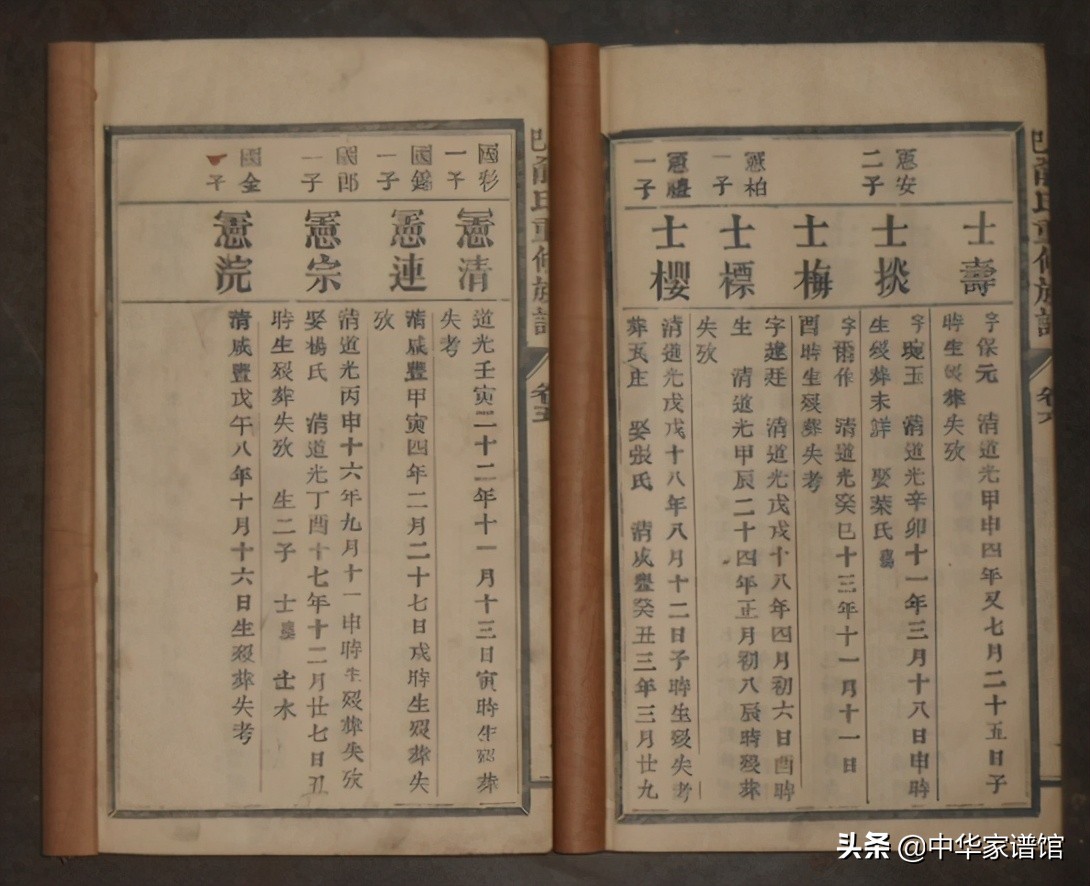 憲安
二子
士壽
字保元 清道光甲申四年又七月二十五日子
時生 歿葬失攷
士掞
字琬玉 清道光辛卯十一年三月十八日申時
生歿葬未詳 娶榮氏
士梅
字爾作 清道光癸巳十三年十一月十一日
酉時生歿葬失考
憲柏
一子
士標
字建廷 清道光戊戌十八年四月初六日酉時
生 清道光甲辰二十四年正月初八辰時歿葬
失攷
憲禮
一子
士櫻
清道光戊戌十八年八月十二日子時生歿失考
葬瓦庄 娶張氏 清咸豐癸丑三年三月廿九
氏重修族譜
國彩
一子
憲清
道光壬寅二十二年十一月十三日寅時生歿葬
失考
國
一子
憲連
清咸豐甲寅四年二月二十七日戌時生歿葬失
攷
國郎
一子
憲宗
清道光丙申十六年九月十一申時生歿葬失攷
娶楊氏 清道光丁酉十七年十二月廿七日丑
時生歿葬失攷 生二子 士 士木
國全
子
憲浣
清咸豐戊午八年十月十六日生歿葬失考
頭条 @中华家谱馆